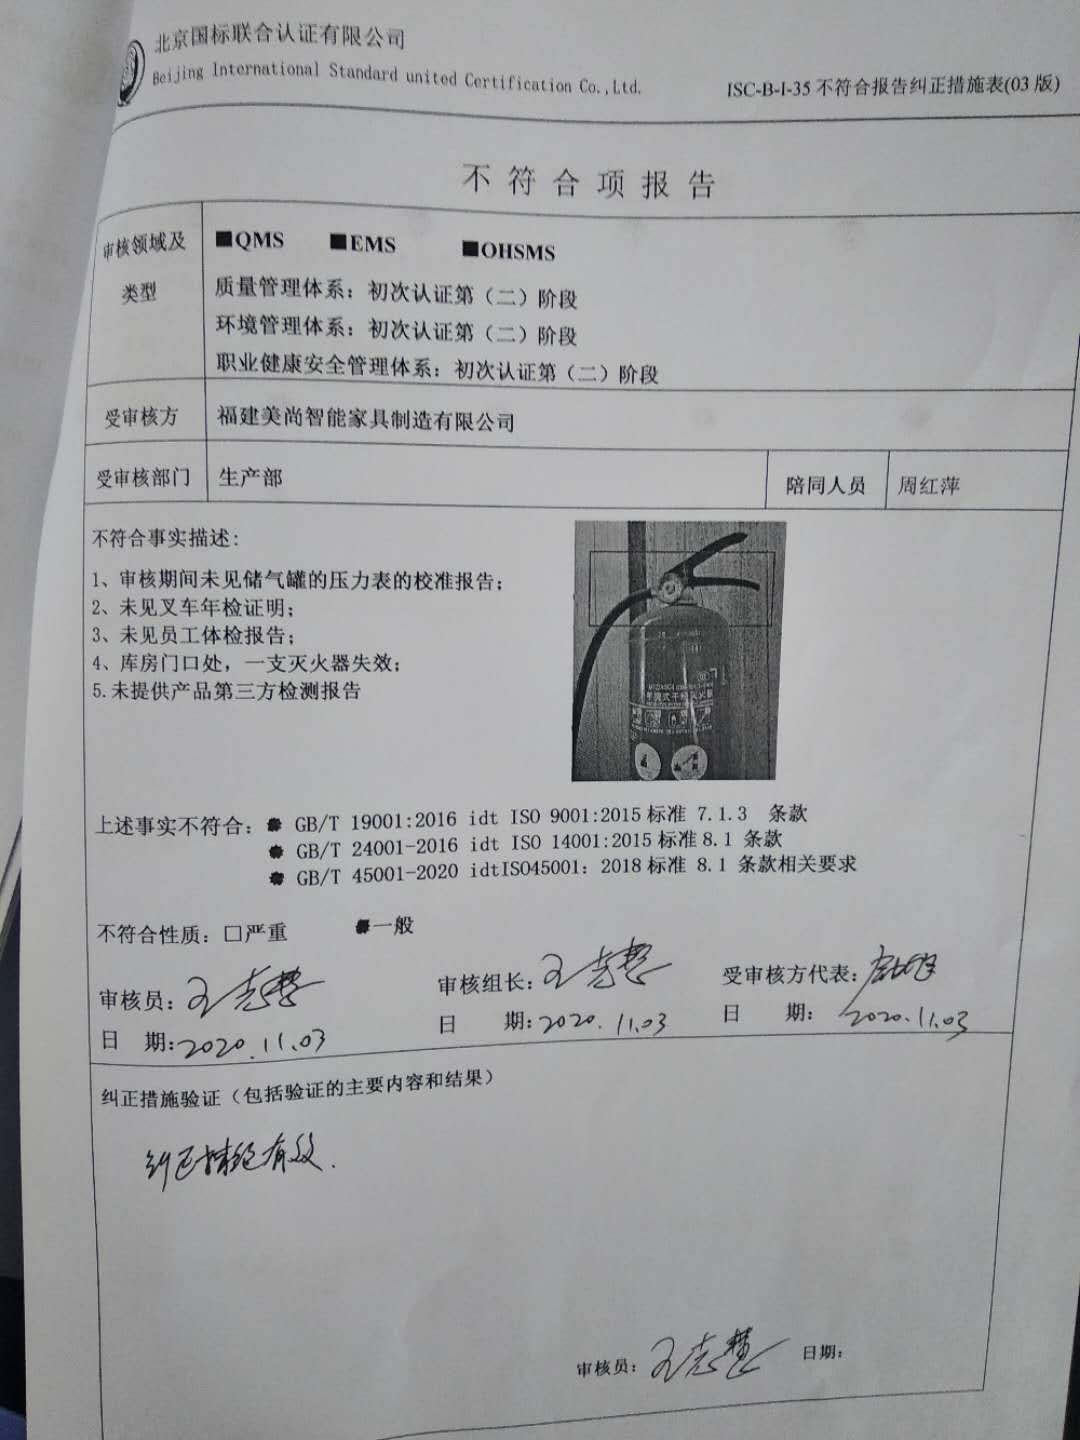 北京国标联合认证有限公司
Beijing International Standard united Certification Co.,Ltd.
ISC-B-I-35 不符合报告纠正措施表(03 版)
不符合项报告
审核领域及类型
■QMS ■EMS ■OHSMS
质量管理体系：初次认证第（二）阶段
环境管理体系：初次认证第（二）阶段
职业健康安全管理体系：初次认证第（二）阶段
受审核方 福建美尚智能家具制造有限公司
受审核部门 生产部 陪同人员 周红萍
不符合事实描述：
1、审核期间未见储气罐的压力表的校准报告；
2、未见叉车年检证明；
3、未见员工体检报告；
4、库房门口处，一支灭火器失效；
5.未提供产品第三方检测报告
上述事实不符合：● GB/T 19001:2016 idt ISO 9001:2015 标准 7.1.3 条款
● GB/T 24001-2016 idt ISO 14001:2015 标准 8.1 条款
● GB/T 45001-2020 idtISO45001：2018 标准 8.1 条款相关要求
不符合性质：□严重 ■一般
审核员： 审核组长： 受审核方代表：
日 期：2020.11.03 日 期：2020.11.03 日 期：2020.11.03
纠正措施验证（包括验证的主要内容和结果）
纠正措施有效.
审核员： 日期：